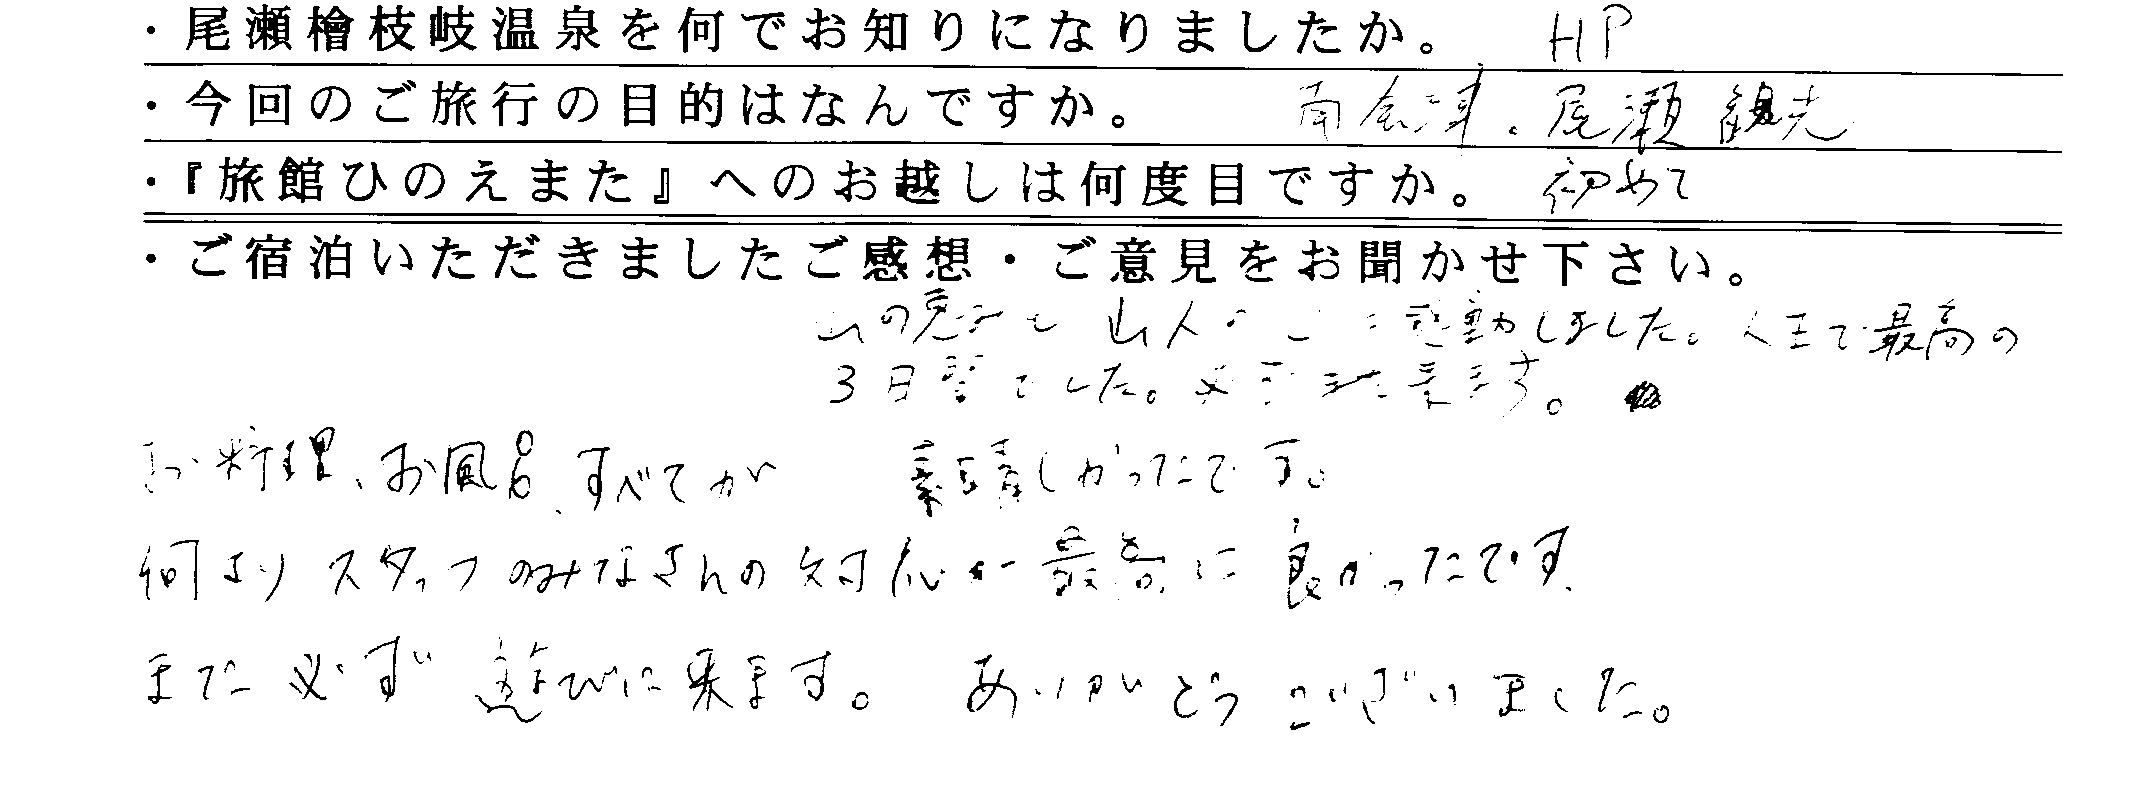 ・尾瀬檜枝岐温泉を何でお知りになりましたか。 HP
・今回のご旅行の目的はなんですか。 南会津、尾瀬観光
・『旅館ひのえまた』へのお越しは何度目ですか。 初めて
・ご宿泊いただきましたご感想・ご意見をお聞かせ下さい。
山の恵みと山人 感動しました。人生で最高の
3日間でした。必ずまた来ます。
お料理、お風呂、すべてが 素晴しかったです。
何よりスタッフのみなさんの対応が最高に良かったです
また必ず遊びに来ます。 ありがとうございました。